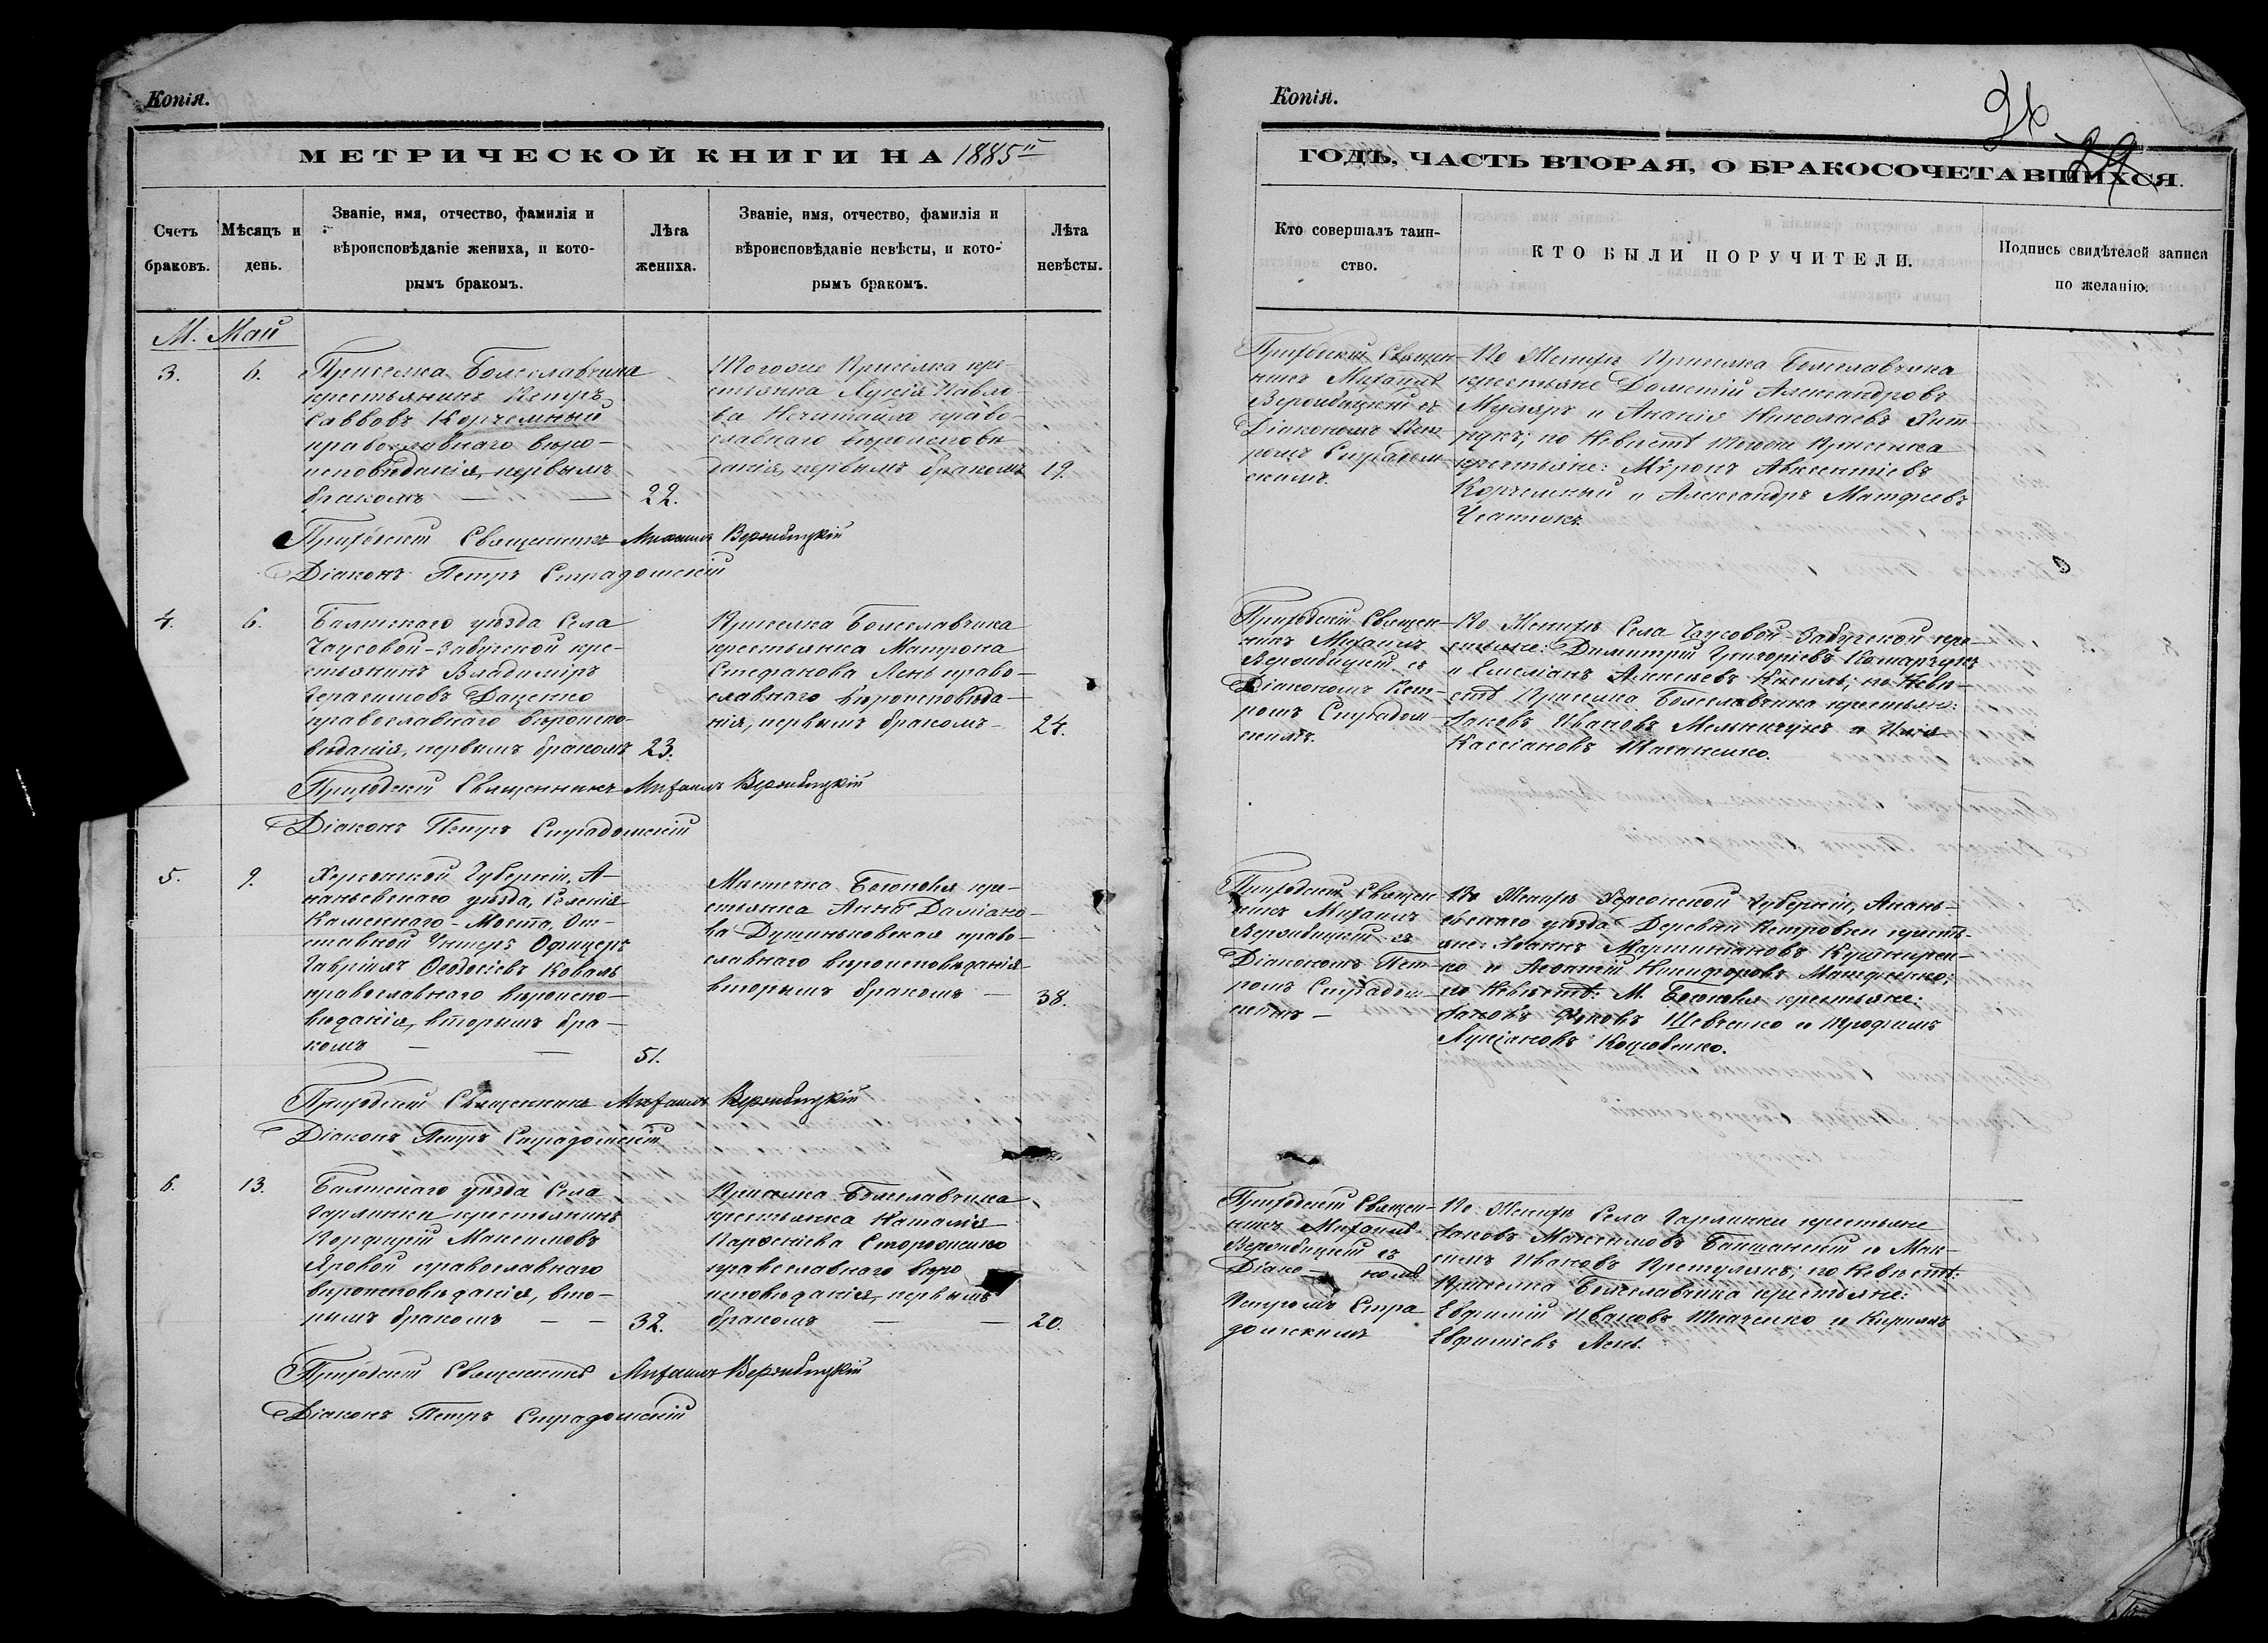 Копія.
МЕТРИЧЕСКОЙ КНИГИ НА 1885й
Счетъ браковъ.
Мѣсяцъ и день.
Званіе, имя, отчество, фамилія и
вѣроисповѣданіе жениха, и кото-
рымъ бракомъ.
Лѣта жениха.
Званіе, имя, отчество, фамилія и
вѣроисповѣданіе невѣсты, и кото-
рымъ бракомъ.
Лѣта невѣсты.
М. Май
3.
6.
Приселка Болеславчика
крестьянинъ Петръ
Саввовъ Корчемный
православнаго вѣро-
исповѣданія, первымъ
бракомъ
22.
Тогоже Приселка кре-
стьянка Лукія Павло-
ва Нечитайло право-
славнаго вѣроисповѣ
данія, первымъ бракомъ
19.
Приходскій Священникъ Михаилъ Вержбицкій
Діаконъ Петръ Страдомскій
4.
6.
Балтскаго уѣзда Села
Чаусовой-Забугской кре-
стьянинъ Владиміръ
Герасимовъ Даценко
православнаго вѣроиспо-
вѣданія, первымъ бракомъ
23.
Приселка Болеславчика
крестьянка Матрона
Стефанова Лень право-
славнаго вѣроисповѣда-
нія, первымъ бракомъ
24.
Приходскій Священникъ Михаилъ Вержбицкій
Діаконъ Петръ Страдомскій
5.
9.
Херсонской Губерніи, А-
наньевскаго уѣзда, Селенія
Каменнаго-Моста, От-
ставной Унтеръ Офицеръ
Гавріилъ Ѳеодосіевъ Коваль
православнаго вѣроиспо-
вѣданія, вторымъ бра-
комъ
51.
Мѣстечка Богополя кре-
стьянка Анна Даміано-
ва Душиньковская право-
славнаго вѣроисповѣданія
вторымъ бракомъ
38.
Приходскій Священникъ Михаилъ Вержбицкій
Діаконъ Петръ Страдомскій
6.
13.
Балтскаго уѣзда Села
крестьянинъ
Порфирій Максимовъ
Яровой православнаго
вѣроисповѣданія, вто-
рымъ бракомъ
32.
Приселка Болеславчика
крестьянка Наталія
Парѳеніева Стороженко
православнаго вѣро
исповѣданія, первымъ
бракомъ
20.
Приходскій Священникъ Михаилъ Вержбицкій
Діаконъ Петръ Страдомскій
Копія.
ГОДЪ, ЧАСТЬ ВТОРАЯ, О БРАКОСОЧЕТАВШИХСЯ.
Кто совершалъ таин-
ство.
КТО БЫЛИ ПОРУЧИТЕЛИ.
Подпись свидѣтелей записи
по желанію.
Приходскій Священ-
никъ Михаилъ
Вержбицкій съ
Діакономъ Пет-
ромъ Страдом-
скимъ.
По Женихѣ Приселка Болеславчика
крестьяне Дометій Александровъ
Муляръ и Ананія Николаевъ
по Невѣстѣ тогоже Приселка
крестьяне: Миронъ Авксентіевъ
Корчемный и Александръ Матфеевъ
Приходскій Священ-
никъ Михаилъ
Вержбицкій съ
Діакономъ Пет-
ромъ Страдом-
скимъ.
По Женихѣ Села Чаусовой-Забугской кре-
стьяне: Димитрій Григоріевъ Комарчукъ
и Емеліанъ Алексіевъ Кисиль; по Невѣ-
стѣ Приселка Болеславчика крестьяне:
Іаковъ Ивановъ Мельничукъ и Илія
Кассіановъ
Приходскій Священ-
никъ Михаилъ
Вержбицкій съ
Діакономъ Пет-
ромъ Страдом-
скимъ
По Женихѣ Херсонской Губерніи, Анань-
евскаго уѣзда Деревни Петровки кресть-
яне: Іоаннъ Мартиніановъ Кушнирен-
ко и Леонтій Никифоровъ Матфіенко;
по Невѣстѣ: М. Богополя крестьяне:
Іаковъ Яковъ Шевченко и Трофимъ
Лукіановъ Коцюбенко.
Приходскій Священ-
никъ Михаилъ
Вержбицкій съ
Діако-номъ
Петромъ Стра
домскимъ
По Женихѣ Села крестьяне
Іаковъ Максимовъ Бакшанскій и Мак-
симъ Ивановъ по Невѣстѣ:
Приселка Болеславчика крестьяне:
Евфимій Ивановъ Ткаченко и Кириллъ
Евфиміевъ Лень.